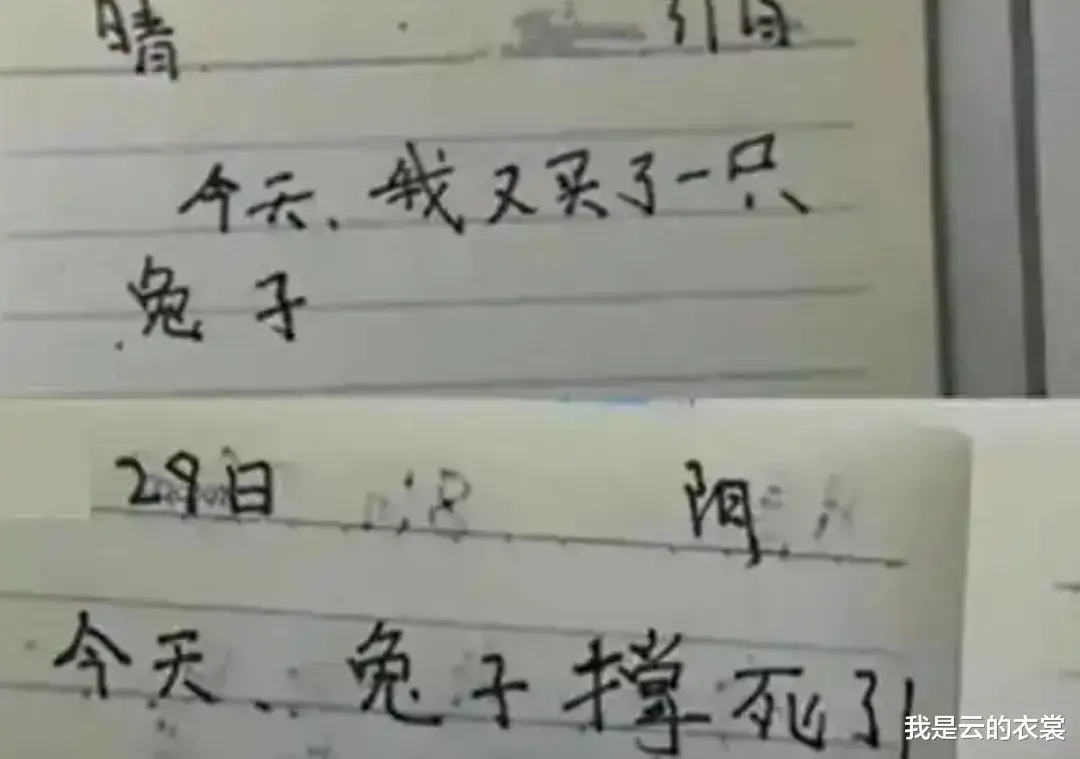 晴
今天、我又买了一只
兔子
29日 阴
今天、兔子撑死了
我是云的衣裳